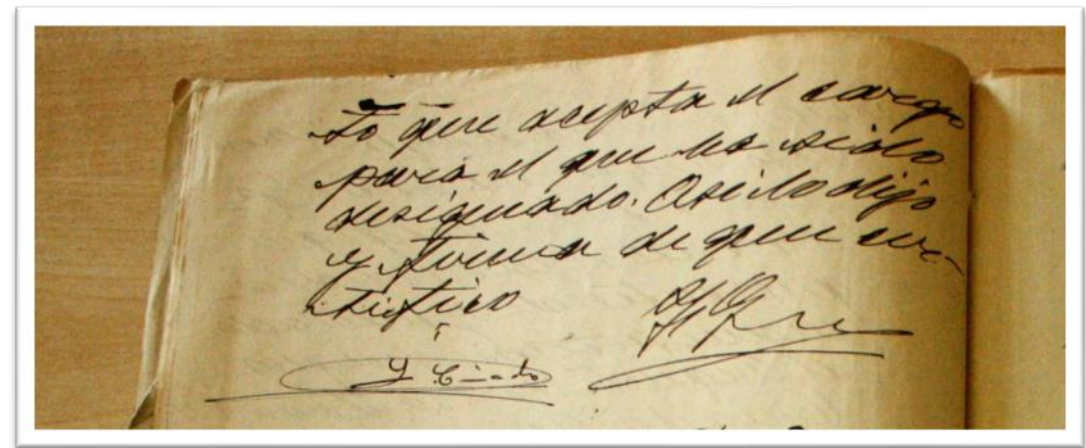 to que acepta el cargo
para el que ha sido
designado. Asi lo dijo
y firma de que cer-
tifico